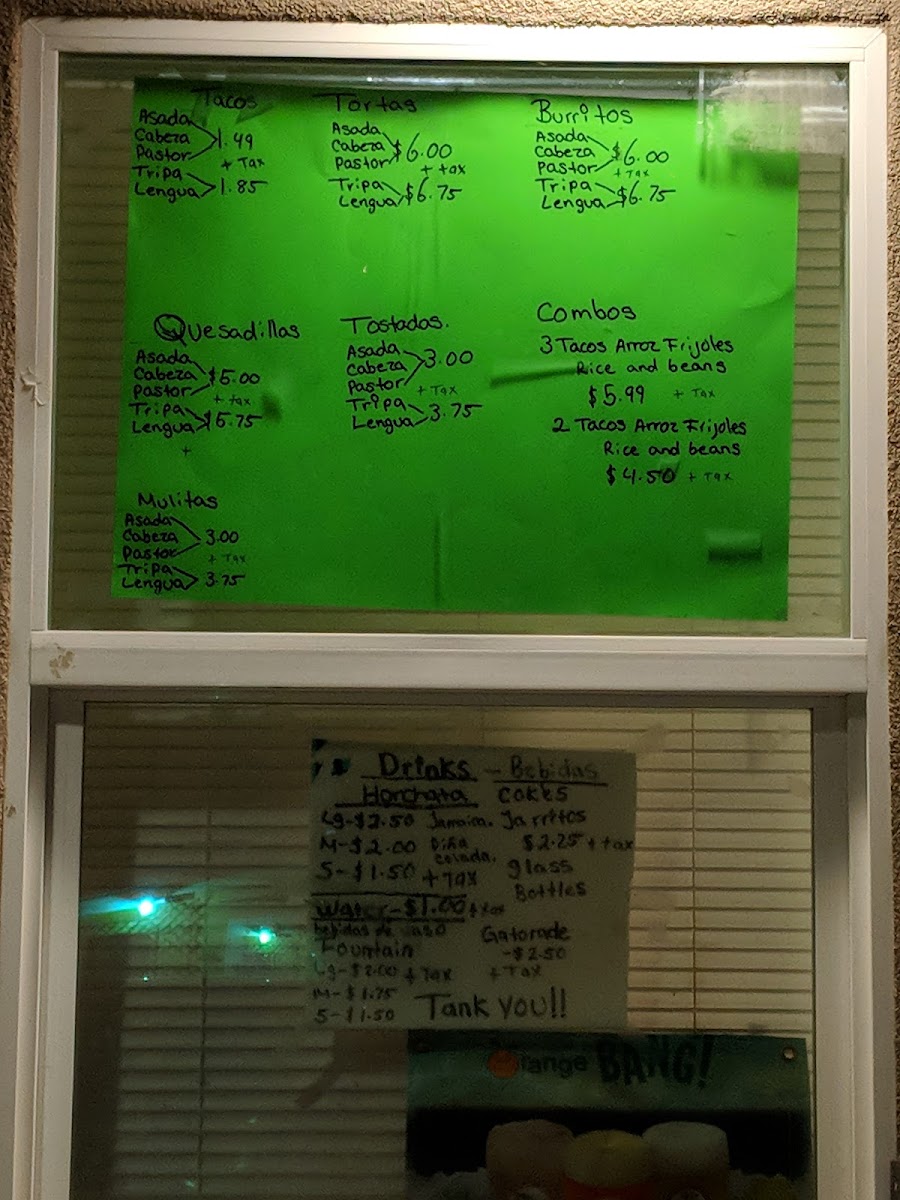 Tacos
Asada
Cabeza 1.49
Pastor + Tax
Tripa
Lengua 1.85
Tortas
Asada
Cabeza $6.00
Pastor + tax
Tripa $6.75
Lengua
Burritos
Asada
Cabeza $6.00
Pastor + Tax
Tripa $6.75
Lengua
Quesadillas
Asada
Cabeza $5.00
Pastor + tax
Tripa $5.75
Lengua
+
Tostadas.
Asada 3.00
Cabeza
Pastor + Tax
Tripa 3.75
Lengua
Combos
3 Tacos Arroz Frijoles
Rice and beans
$5.99 + Tax
2 Tacos Arroz Frijoles
Rice and beans
$4.50 + Tax
Mulitas
Asada
Cabeza 3.00
Pastor + Tax
Tripa 3.75
Lengua
Drinks - Bebidas
Horchata Cokes
Lg-$2.50 Jamaica. Jarritos
M-$2.00 Piña colada. $2.25 + tax
S-$1.50 + Tax glass
Bottles
Water-$1.00 + tax
bebidas de vaso Gatorade
Fountain -$2.50
Lg-$2.00 + Tax + Tax
M-$1.75
S-$1.50 Tank you!!
Orange BANG!